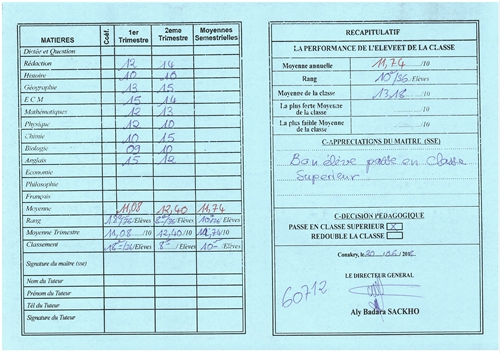 MATIERES Coéf. 1er Trimestre 2eme Trimestre Moyennes Semestrielles
Dictée et Question
Rédaction 12 14
Histoire 10 10
Géographie 13 15
E C M 15 14
Mathématiques 12 13
Physique 12 10
Chimie 10 15
Biologie 09 10
Anglais 15 12
Economie
Philosophie
Français
Moyenne 11,08 12,40 11,74
Rang /Elèves /Elèves /Elèves
Moyenne Trimestre 11,08 /10 12,40 /10 11,74 /10
Classement /Elèves /Elèves /Elèves
Signature du maître (sse)
Nom du Tuteur
Prénom du Tuteur
Tél du Tuteur
Signature du Tuteur
RECAPITULATIF
LA PERFORMANCE DE L'ELEVEET DE LA CLASSE
Moyenne annuelle 11,74 /10
Rang 10e/36 /Elèves
Moyenne de la classe 13,18 /10
La plus forte Moyenne de la classe /10
La plus faible Moyenne de la classe /10
C-APPRECIATIONS DU MAITRE (SSE)
Bon élève passe en Classe
Superieur
C-DECISION PEDAGOGIQUE
PASSE EN CLASSE SUPERIEUR X
REDOUBLE LA CLASSE
Conakry, le 20
LE DIRECTEUR GENERAL
60712
Aly Badara SACKHO